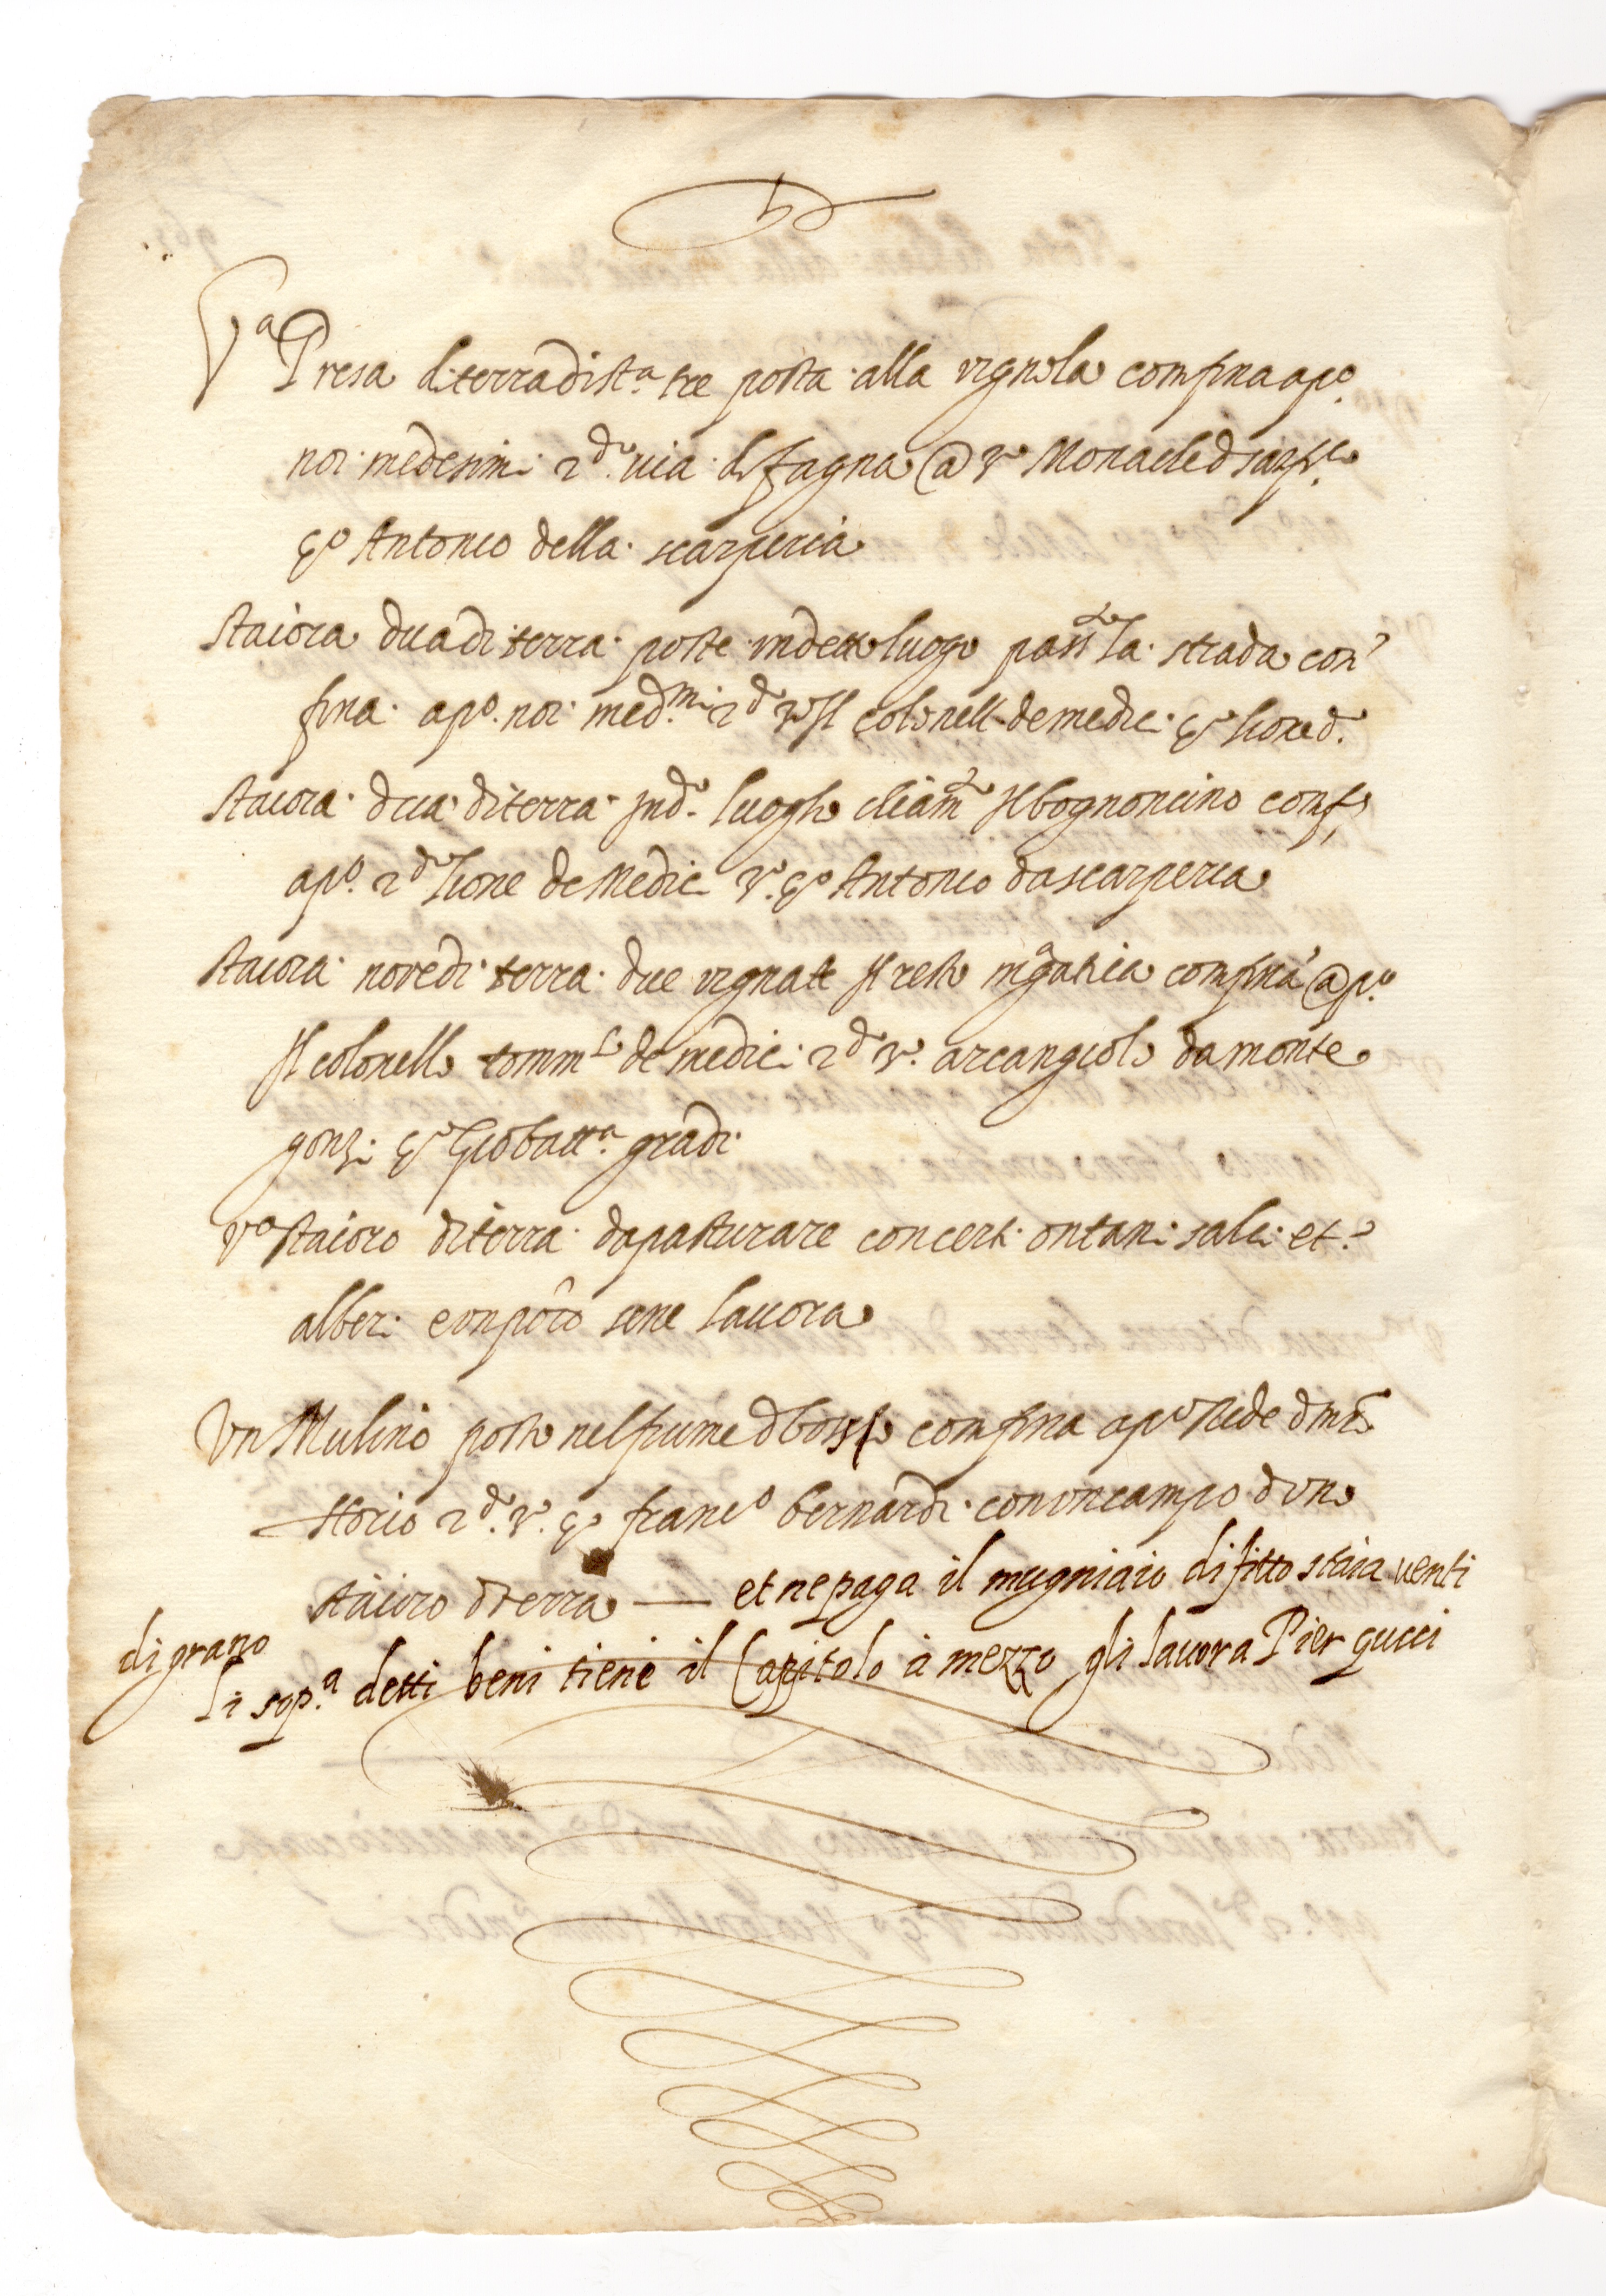 Va Presa di terra di sta. tre posta alla vignola confina a po.
noi medesimi 2do. via di fagna @ 3o Monache di
4o Antonio della scarperia
staiora dua di terra poste in detto luogo passto la strada con
fina a po. noi med.mi 2do 3o Il colonello de medici 4o lione d.
staiora dua di terra in do. luogho chiamto Il bognoncino conf.
a po. 2do lione de Medici 3o. 4o Antonio da scarperia
staiora nove di terra due vignate Il resto confina @ po.
Il colonello tommo de medici 2do 3o. arcangiolo da monte
gonzi 4o Giobatta. gradi
Vo staioro di terra da pasturare con certi ontani salci et
alberi e un poco se ne lavora
Un Mulino posto nel fiume d confina a po rede d
2do. 3o. 4o franco bernardi con un campo d uno
staioro d terra — et ne paga il mugniaio di fitto staia venti
di grano
li sop.a detti beni tiene il Capitolo à mezzo gli lavora Pier gucci